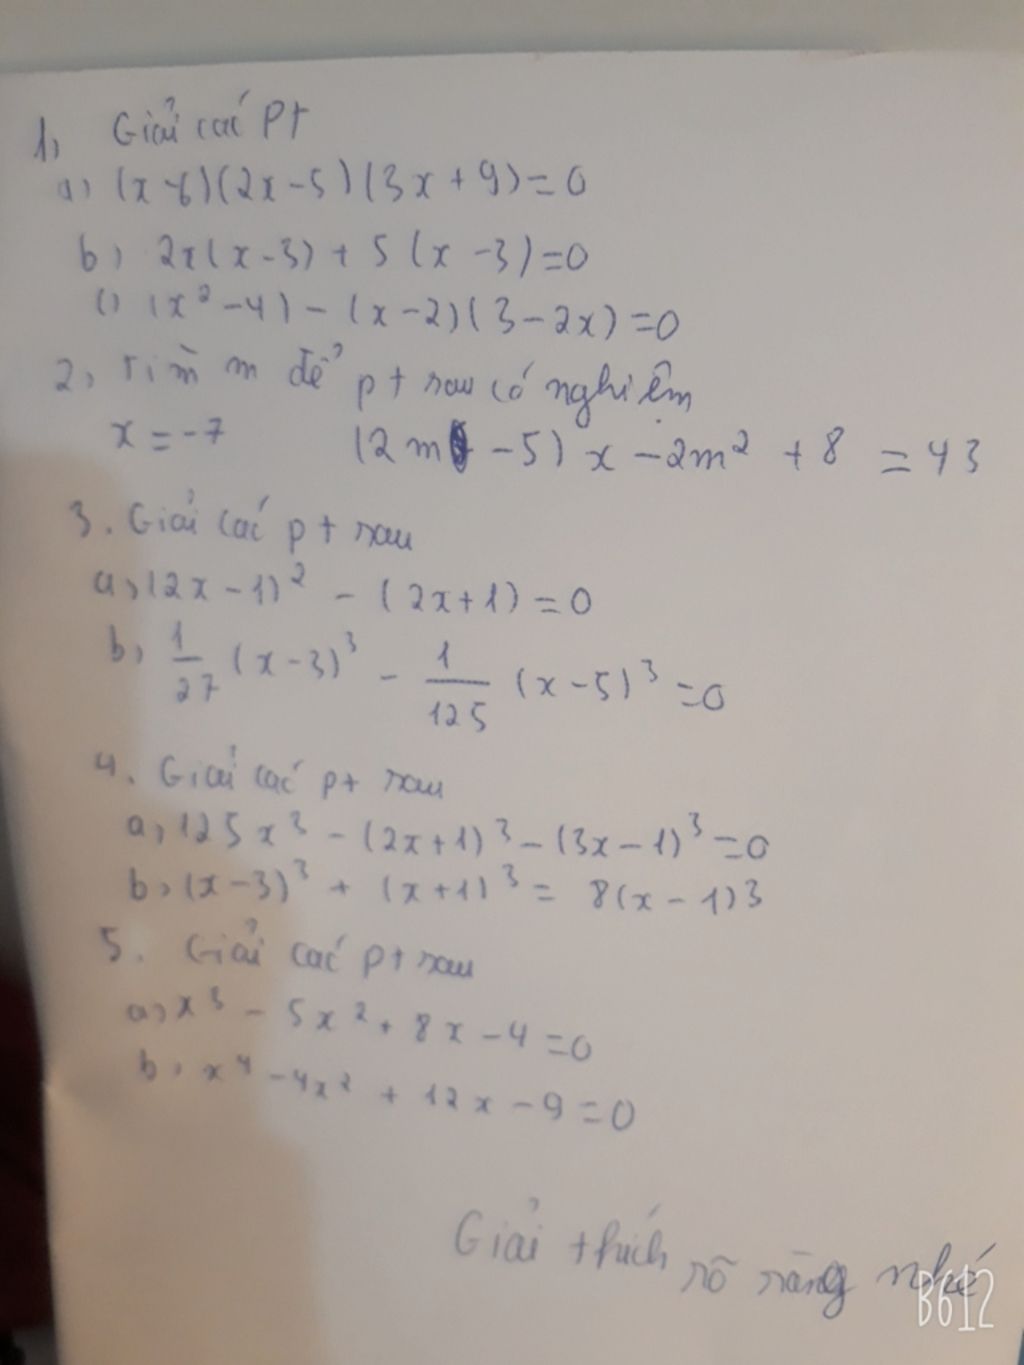 1, Giải các pt
a, (x-6)(2x-5)(3x+9)=0
b, 2x(x-3)+5(x-3)=0
c) (x²-4)-(x-2)(3-2x)=0
2, Tìm m để pt sau có nghiệm
x=-7 (2m-5)x-2m²+8=43
3. Giải các pt sau
a, (2x-1)²-(2x+1)=0
b, 1/27 (x-3)³ - 1/125 (x-5)³=0
4. Giải các pt sau
a, 125x³-(2x+1)³-(3x-1)³=0
b, (x-3)³+(x+1)³=8(x-1)3
5. Giải các pt sau
a, x³-5x²+8x-4=0
b, x⁴-4x²+12x-9=0
Giải thích rõ ràng nhé
B612